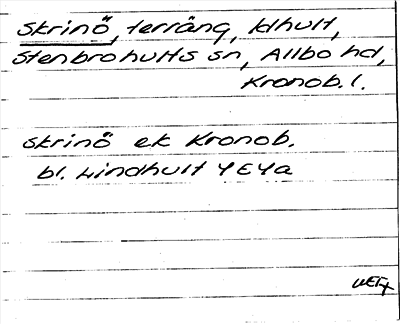 Skrinö, terräng, Idhult,
Stenbrohults sn, Allbo hd,
Kronob. l.
Skrinö ek Kronob.
bl. Lindhult 4E4a